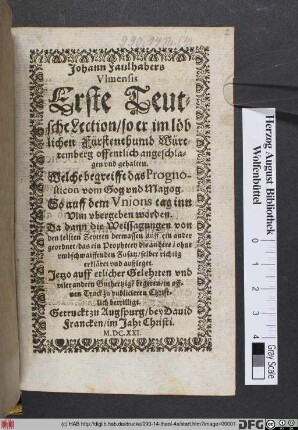 Johann Faulhabers
Vlmensis
Erste Teut-
sche Lection / so er im löb
lichen Fürstenthumb Wür-
temberg offentlich angeschla-
gen vnd gehalten.
Welche begreifft das Progno-
sticon vom Gog vnd Magog.
So auff dem Vnions tag inn
Vlm vbergeben worden.
Da dann die Weissagungen von
den letsten Zeyten dermassen auff ein ander
geordnet / das ein Prophecey die andere / ohne
vmbschwaiffenden Zusatz / selber richtig
erkläret vnd außleget.
Jetzo auff etlicher Gelehrten vnd
viler andern Gutherzigẽ begeren / in off-
nen Truck zu publicieren Christ-
lich bewilliget.
Getruckt zu Augspurg / bey David
Francken / im Jahr Christi.
M.DC.XXI.
Herzog August Bibliothek
Wolfenbüttel
Gray Scale
(c) HAB http://diglib.hab.de/drucke/
DFG